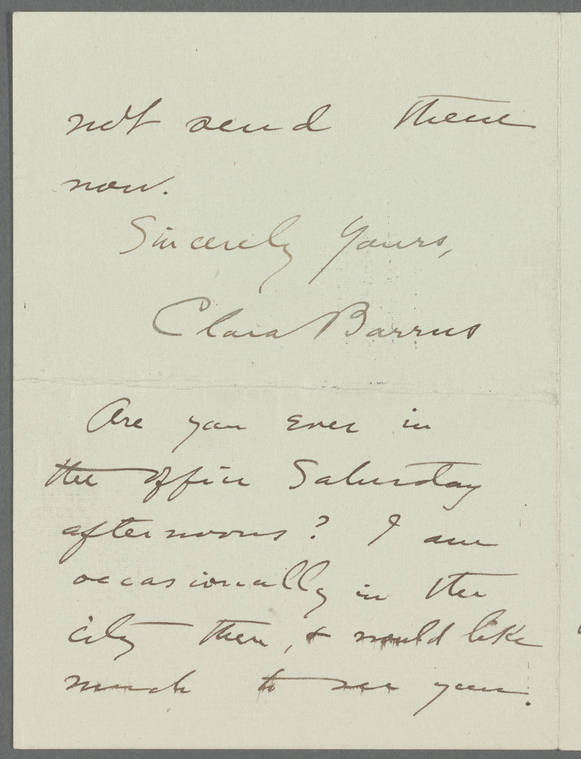 not send them
now.
Sincerely Yours,
Clara Barrus
Are you ever in
the office Saturday
afternoons? I am
occasionally in the
city then, & would like
much to see you.